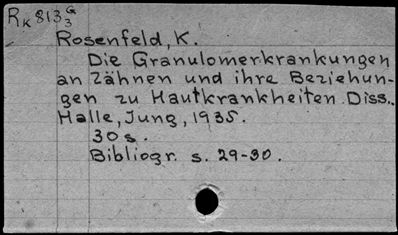 RK 813 G 3
Rosenfeld, K.
Die Granulomerkrankungen
an Zähnen und ihre Beziehun-
gen zu Hautkrankheiten. Diss..
Halle, Jung, 1935.
30 s.
Bibliogr. s. 29-30.